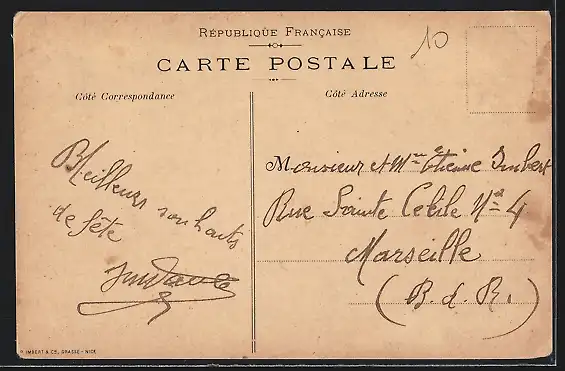 République Française
10
CARTE POSTALE
Côté Correspondance
Côté Adresse
Meilleurs souhaits
de fête
Monsieur et Mme Etienne Imbert
Rue Sainte Cécile No 4
Marseille
(B. d. R.)
IMBERT & CE, GRASSE - NICE